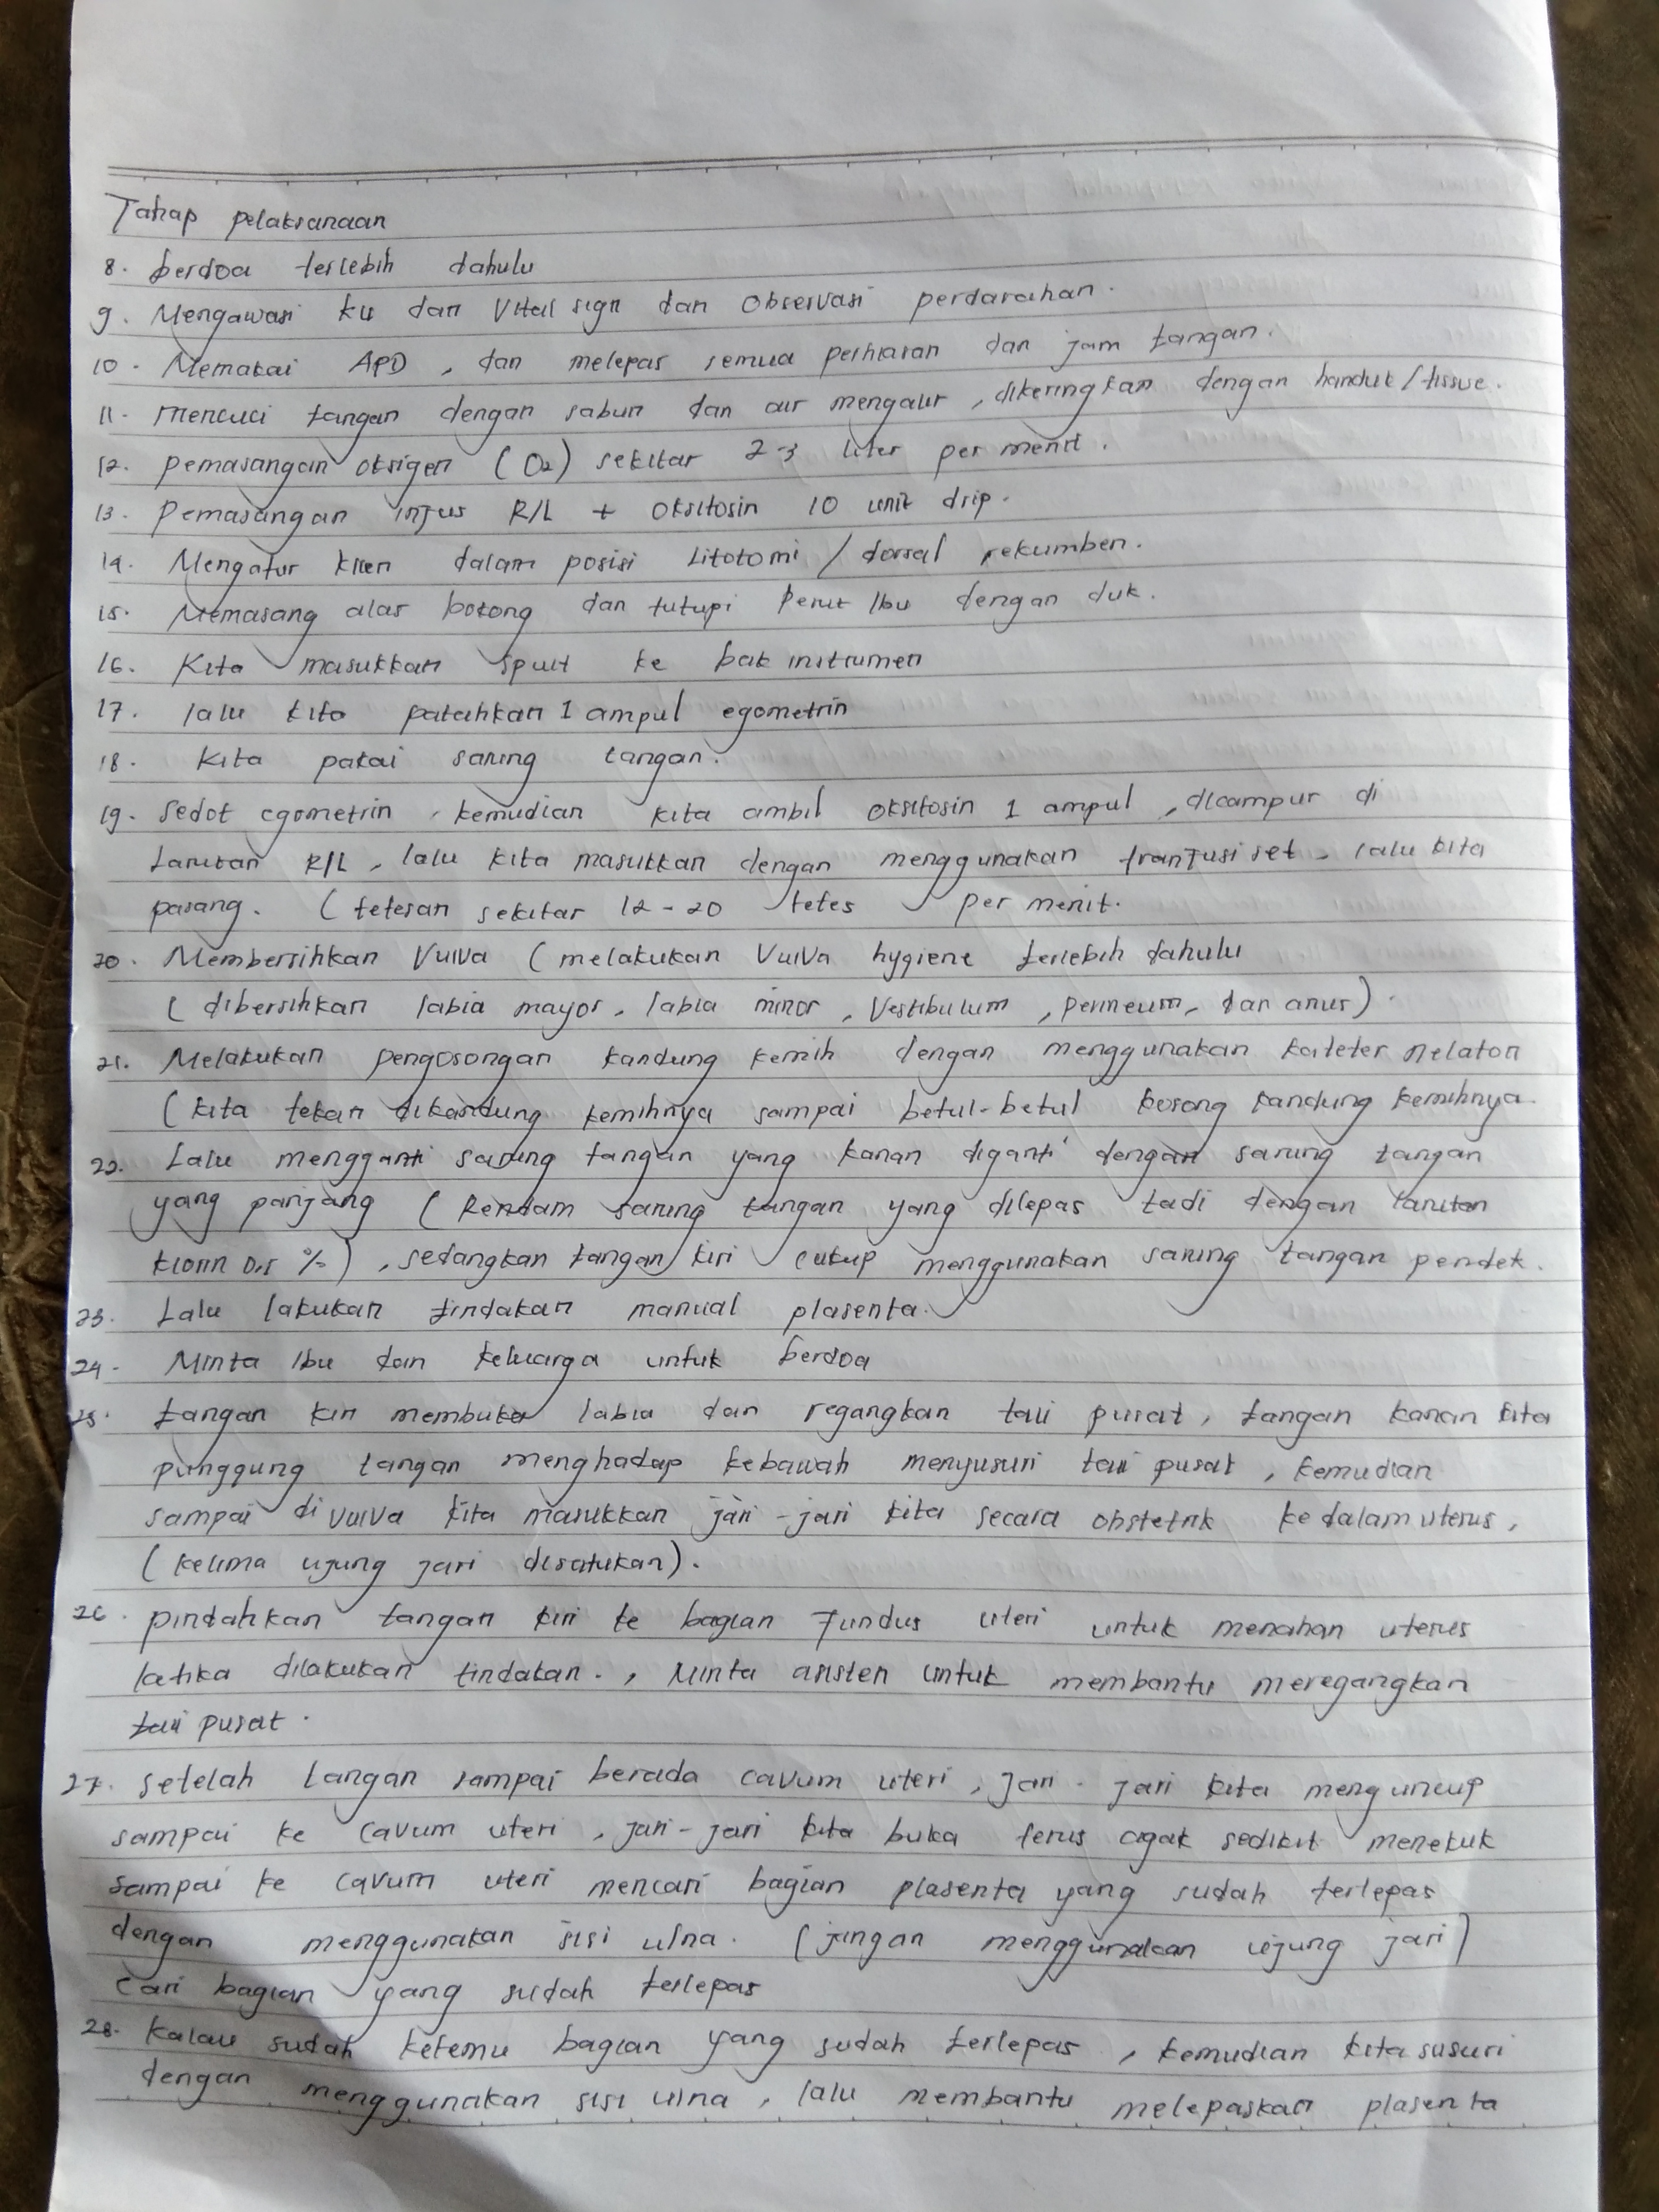 Tahap pelaksanaan
8. berdoa terlebih dahulu
9. Mengawasi ku dan Vital sign dan Observasi perdarahan.
10. Memakai APD, dan melepas semua perhiasan dan jam tangan.
11. mencuci tangan dengan sabun dan air mengalir, dikeringkan dengan handuk/tissue.
12. pemasangan oksigen (O2) sekitar 2-3 liter per menit.
13. Pemasangan infus R/L + Oksitosin 10 unit drip.
14. Mengatur klien dalam posisi Litotomi / dorsal rekumben.
15. Memasang alas bokong dan tutupi Perut Ibu dengan duk.
16. Kita masukkan spuit ke bak instrumen
17. lalu kita patahkan 1 ampul egometrin
18. Kita pakai sarung tangan.
19. Sedot egometrin, kemudian kita ambil oksitosin 1 ampul, dicampur di
Larutan R/L, lalu kita masukkan dengan menggunakan tranfusi set, lalu kita
pasang. (tetesan sekitar 12-20 tetes per menit.
20. Membersihkan Vulva (melakukan Vulva hygiene terlebih dahulu
(dibersihkan labia mayor, labia minor, Vestibulum, perineum, dan anus).
21. Melakukan pengosongan kandung kemih dengan menggunakan kateter nelaton
(kita tekan dikandung kemihnya sampai betul-betul kosong kandung kemihnya.
22. Lalu mengganti sarung tangan yang kanan diganti dengan sarung tangan
yang panjang (Rendam sarung tangan yang dilepas tadi dengan larutan
klorin 0,5 %), sedangkan tangan kiri cukup menggunakan sarung tangan pendek.
23. Lalu lakukan tindakan manual plasenta.
24. Minta Ibu dan keluarga untuk berdoa
25. tangan kiri membuka labia dan regangkan tali pusat, tangan kanan kita
punggung tangan menghadap kebawah menyusuri tali pusat, kemudian
sampai di vulva kita masukkan jari-jari kita secara obstetrik kedalam uterus,
(kelima ujung jari disatukan).
26. pindahkan tangan kiri ke bagian Fundus uteri untuk menahan uterus
latika dilakukan tindakan., Minta asisten untuk membantu meregangkan
tali pusat.
27. setelah tangan sampai berada cavum uteri, jari-jari kita menguncup
sampai ke cavum uteri, jari-jari kita buka terus agak sedikit menekuk
sampai ke cavum uteri mencari bagian plasenta yang sudah terlepas
dengan menggunakan sisi ulna. (jangan menggunakan ujung jari)
cari bagian yang sudah terlepas
28. Kalau sudah ketemu bagian yang sudah terlepas, kemudian kita susuri
dengan menggunakan sisi ulna, lalu membantu melepaskan plasenta